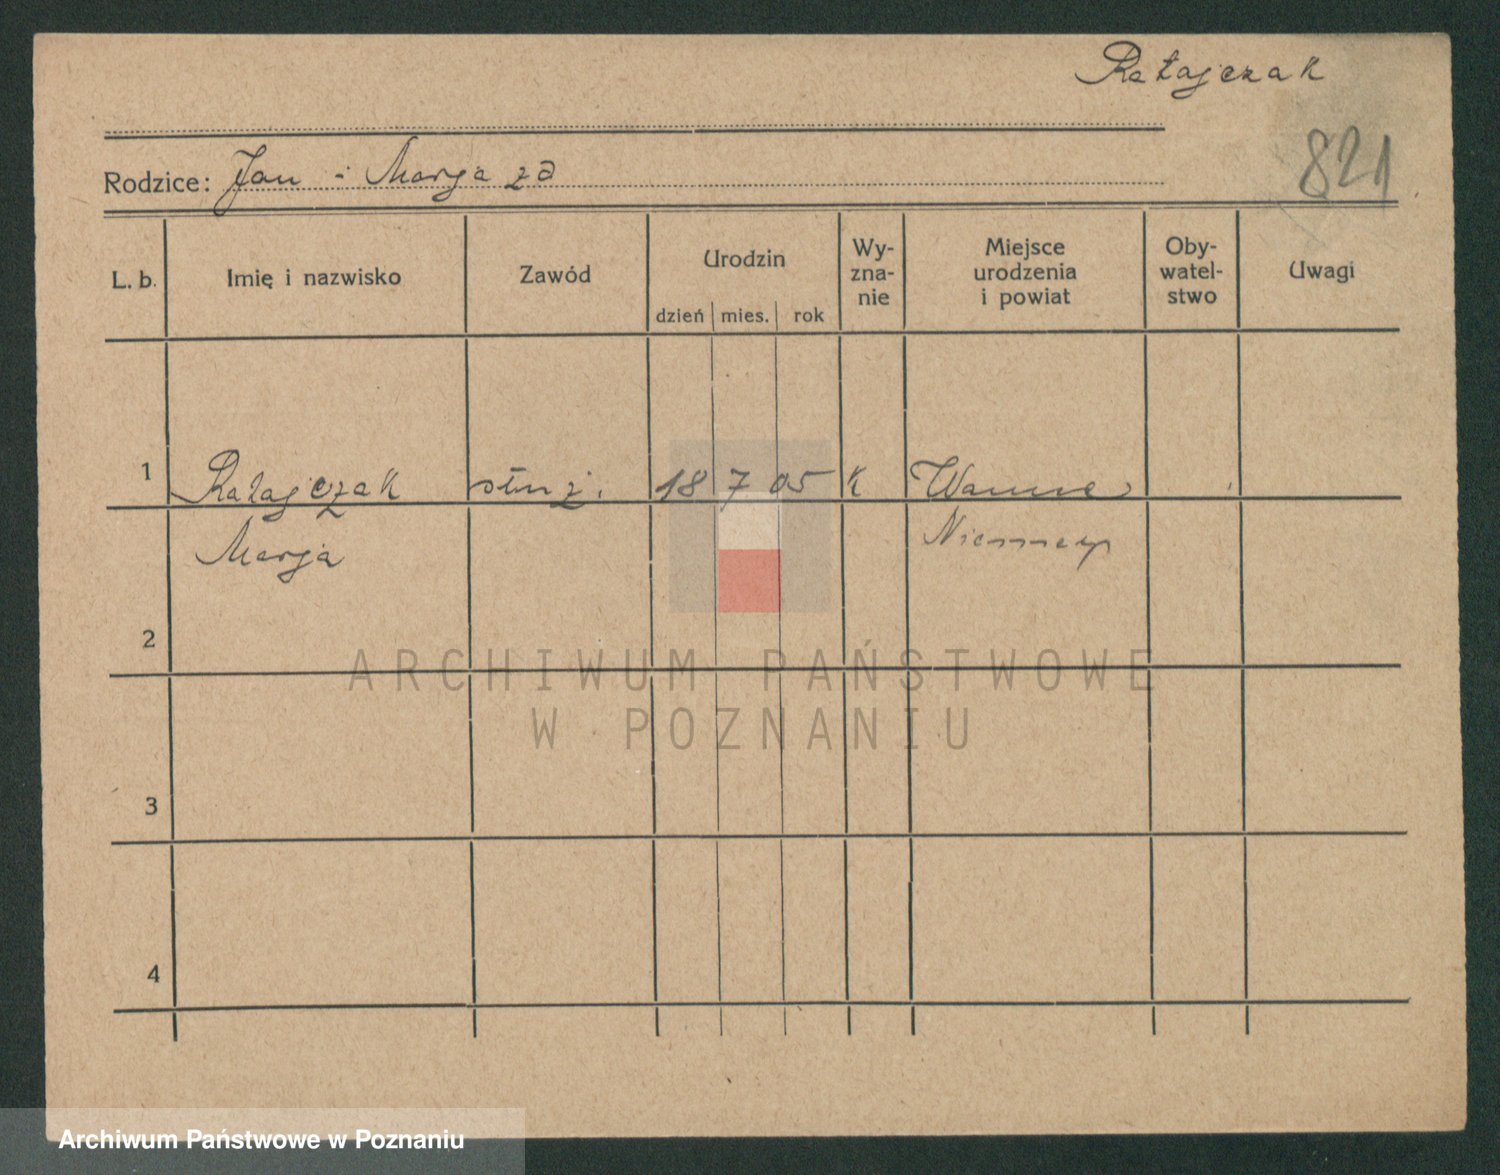 Ratajczak
821
Rodzice: Jan i Marja za
L. b. Imię i nazwisko Zawód Urodzin dzień mies. rok Wy-zna-nie Miejsce urodzenia i powiat Oby-watel-stwo Uwagi
1 Ratajczak służ. 18 7 05 k Wanne
Marja Niemcy
2
3
4
ARCHIWUM PAŃSTWOWE
W POZNANIU
Archiwum Państwowe w Poznaniu